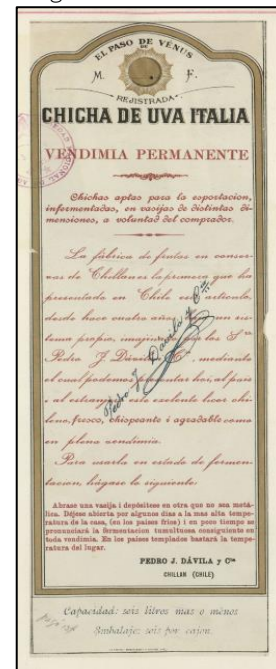 EL PASO DE VÉNUS
M. F.
REJISTRADA
CHICHA DE UVA ITALIA
VENDIMIA PERMANENTE
Chichas aptas para la esportacion,
infermentadas, en vasijas de distintas di-
mensiones, a voluntad del comprador.
La fábrica de frutas en conser-
vas de Chillan es la primera que ha
presentado en Chile este artículo,
desde hace cuatro años, por un sis-
tema propio, los Sres
Pedro J. Dávila mediante
el cual podemos hoi, al pais
i al estranjero este exelente licor chi-
leno, fresco, chispeante i agradable como
en plena vendimia.
Para usarla en estado de fermen-
tacion, hágase lo siguiente:
Abrase una vasija i depósitese en otra que no sea metá-
lica. Déjese abierta por algunos dias a la mas alta tempe-
ratura de la casa, (en los paises frios) i en poco tiempo se
pronunciará la fermentacion tumultuosa consiguiente en
toda vendimia. En los paises templados bastará la tempe-
ratura del lugar.
PEDRO J. DÁVILA y Cia
CHILLAN (CHILE)
Pedro J. Dávila y Cia
Capacidad: seis litros mas o ménos
Embalaje: seis por cajon.